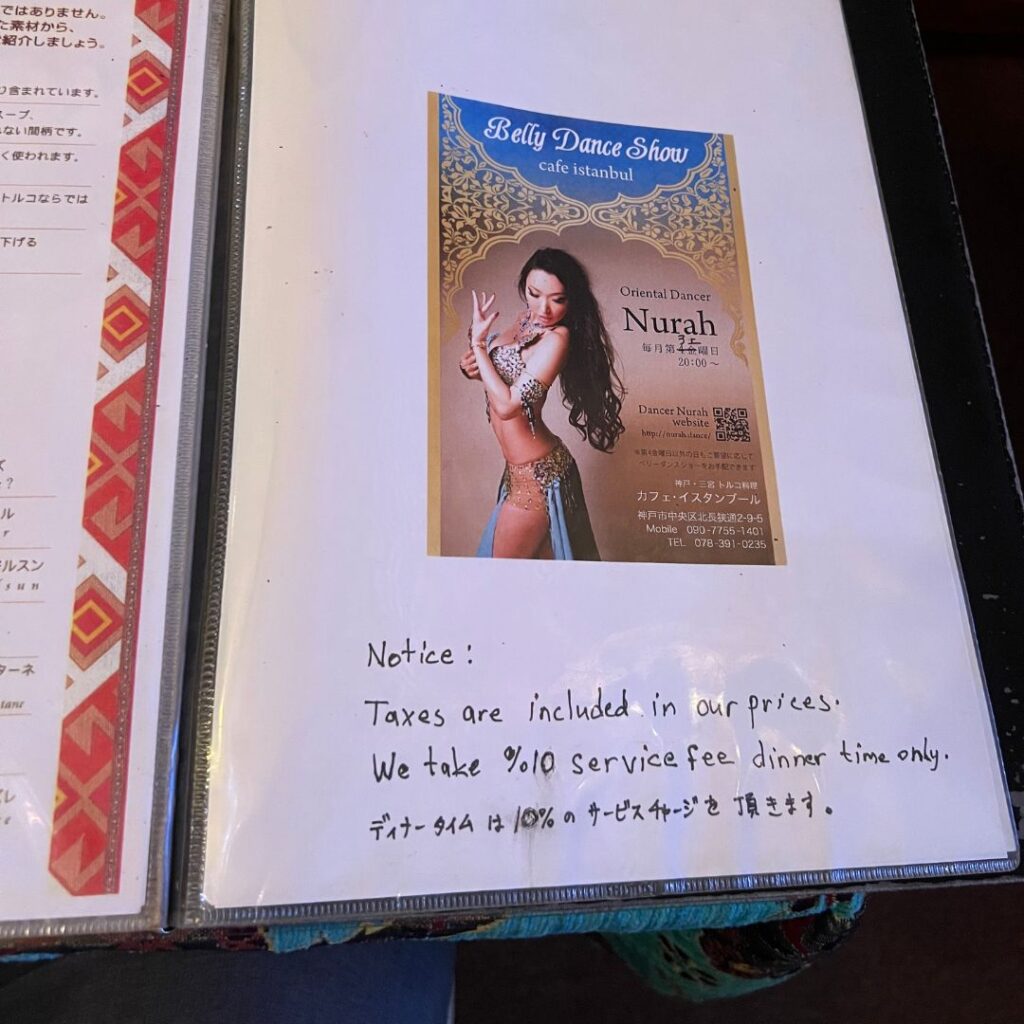 ではありません。
た素材から、
紹介しましょう。
り含まれています。
スープ、
ない間柄です。
く使われます。
トルコならでは
下げる
?
ル
r
ルスン
sun
ターネ
tane
レ
e
Belly Dance Show
cafe istanbul
Oriental Dancer
Nurah
3土
毎月第4金曜日
20:00～
Dancer Nurah
website
http://nurah.dance/
※第4金曜日以外の日もご要望に応じて
ベリーダンスショーをお手配できます
神戸・三宮 トルコ料理
カフェ・イスタンブール
神戸市中央区北長狭通2-9-5
Mobile 090-7755-1401
TEL 078-391-0235
Notice :
Taxes are included in our prices.
We take %10 service fee dinner time only.
ディナータイムは10%のサービスチャージを頂きます。